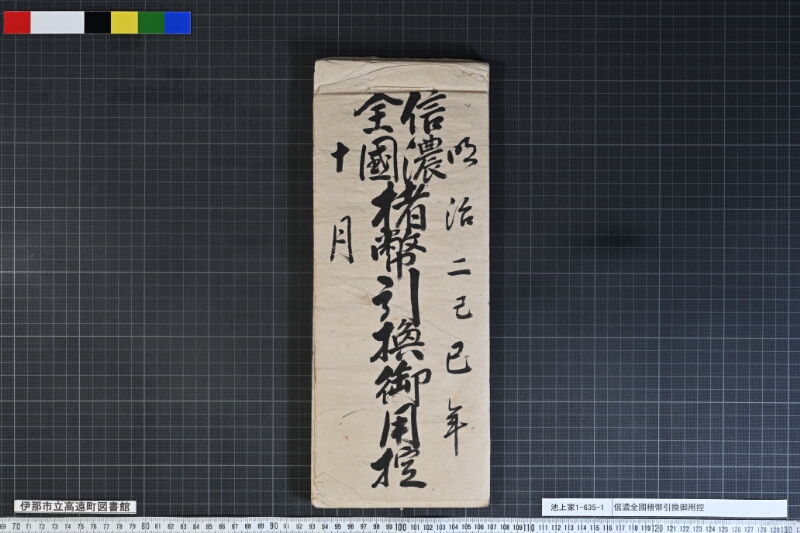 明治二己巳年
信濃
全國
楮幣引換御用控
十月
伊那市立高遠町図書館
池上家1-635-1 信濃全國楮幣引換御用控